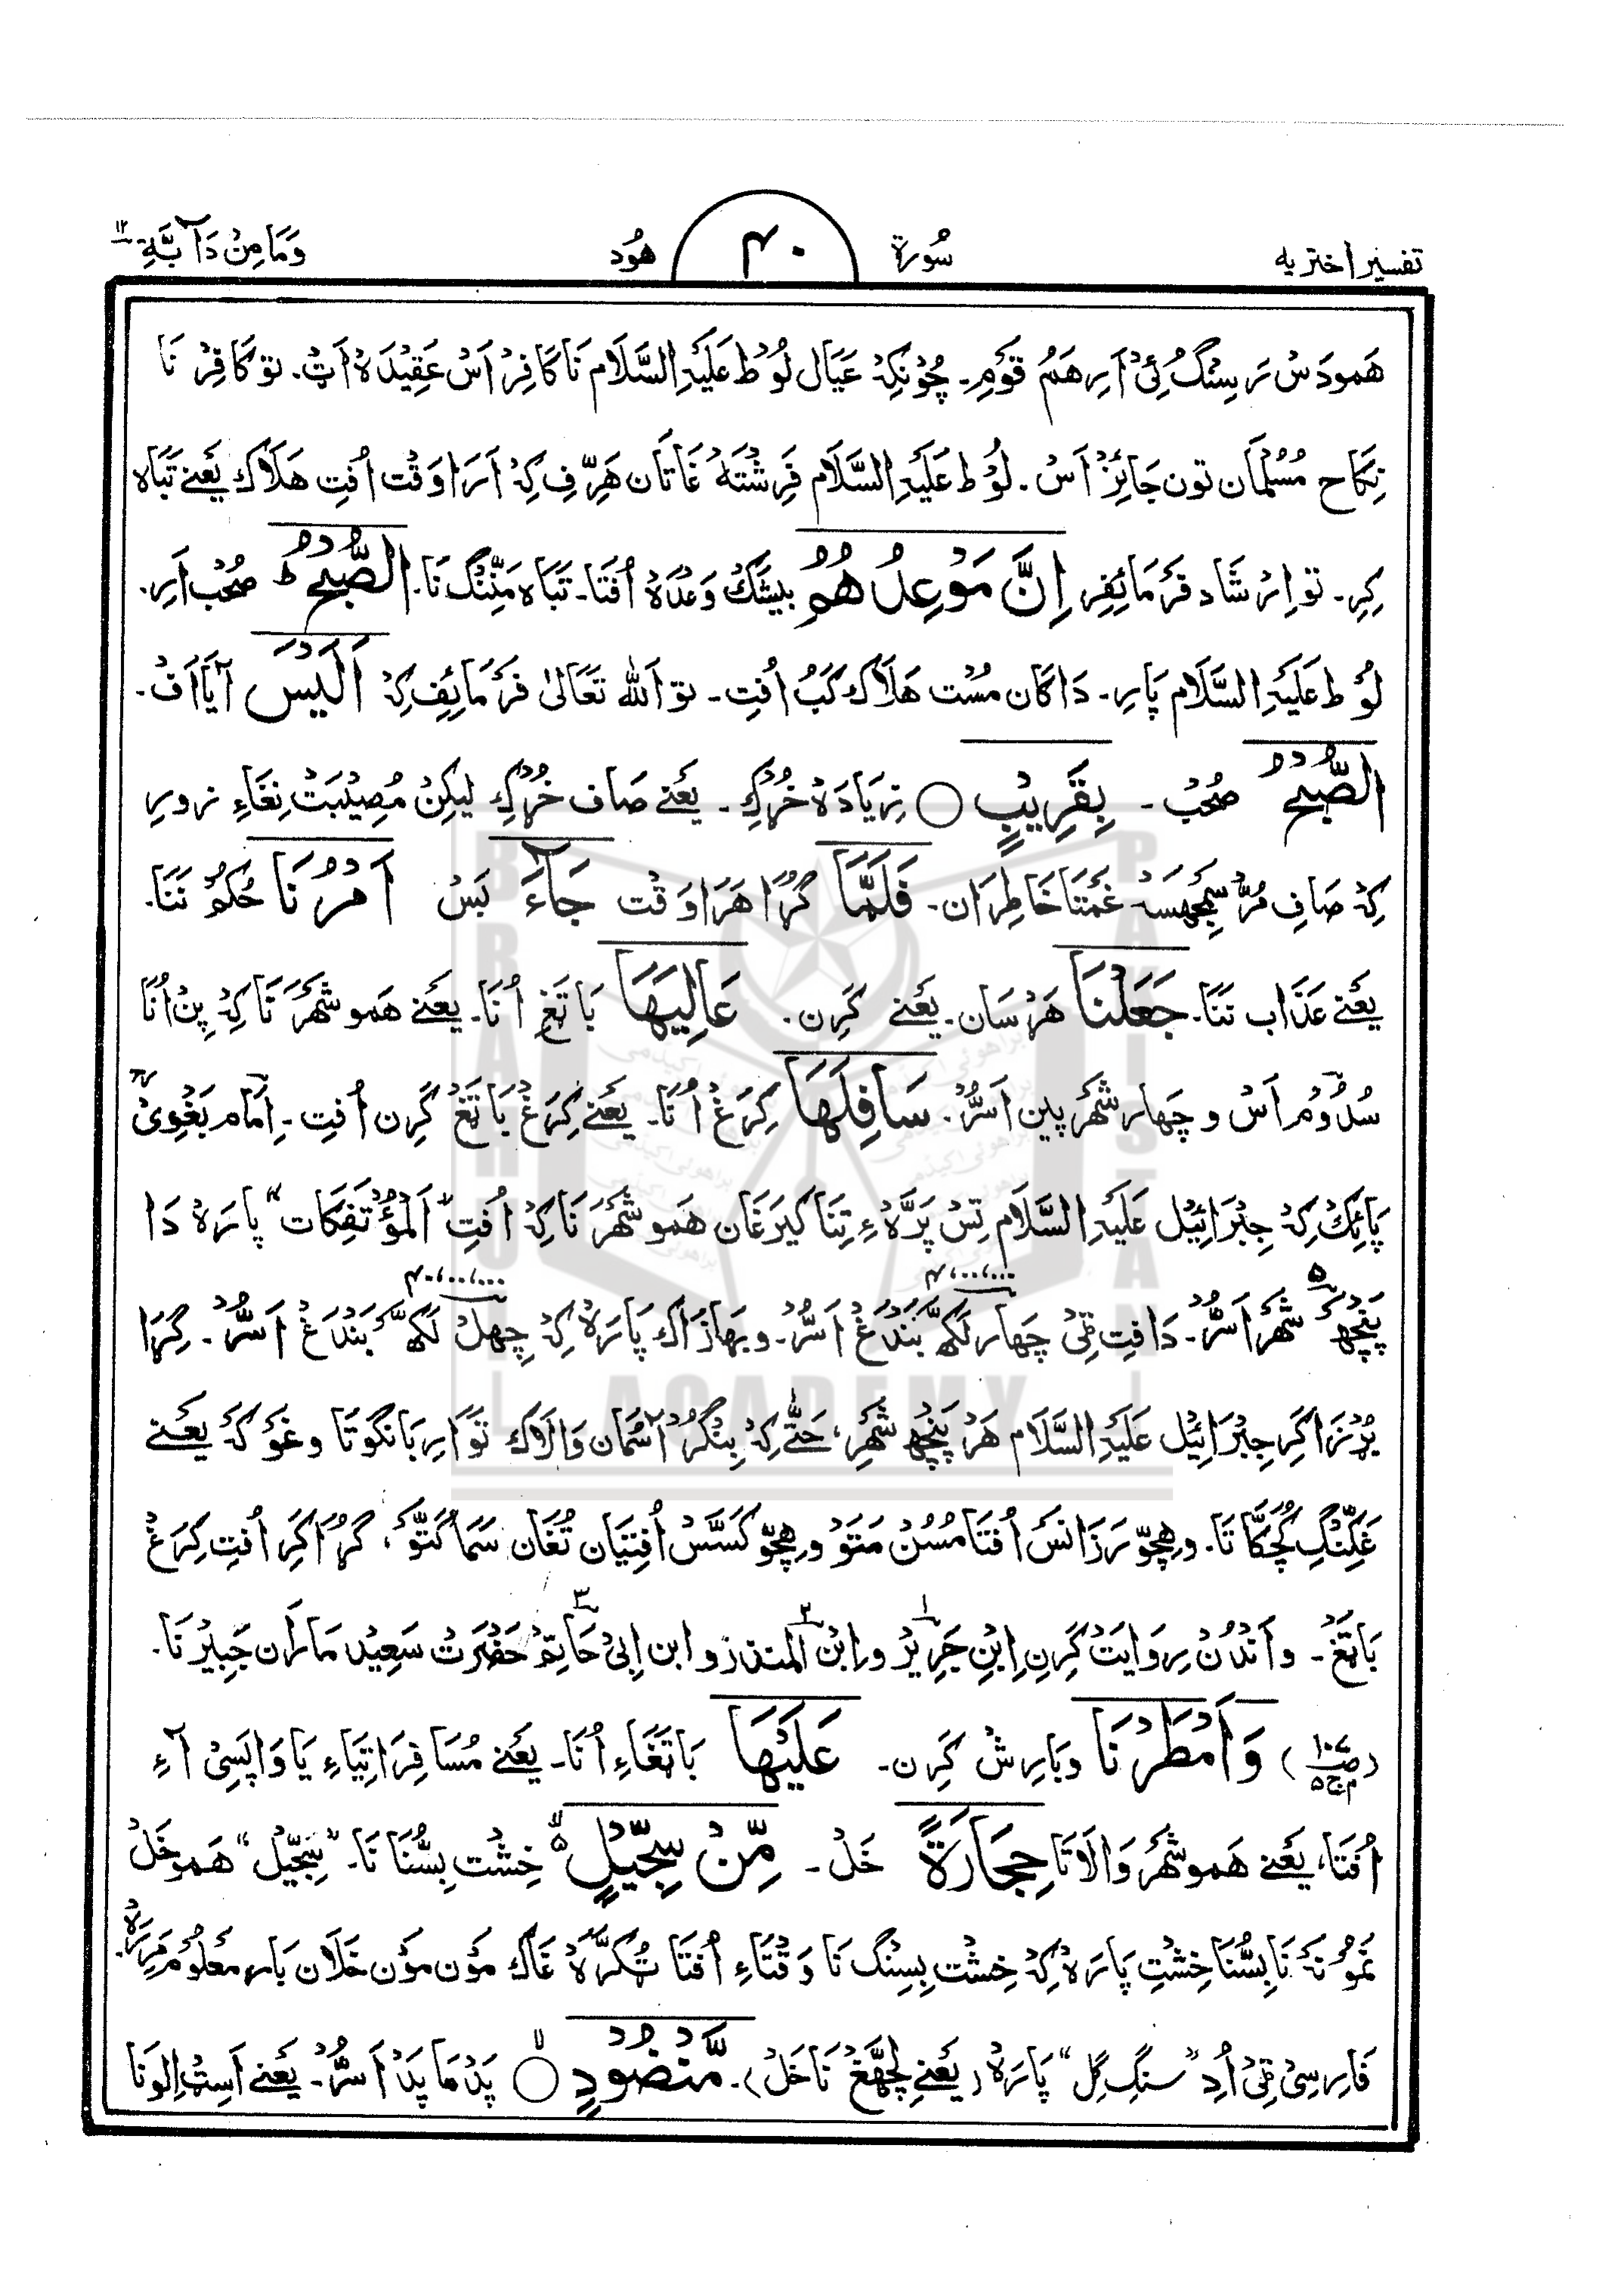 تفسیر اختریه سُورة ۴۰ هُود وَمَا مِنْ دَآبَّةٍ ۱۲
هَمودَسْ رَسِنْگ ئی اَرِ هَمُ قَومِ۔ چُونکِہْ عَیَال لُوْط عَلَیْہِ السَّلَام نَا کَافِرْ اَسْ عَقِیْدَہْ اَٹ۔ تو کَافِرْ نَا
نِکَاح مُسْلمَان تون جَائِزْ اَسْ۔ لُوْط عَلَیْہِ السَّلَام فَرِشْتَہْ غَاتَان ھَرِّفِ کِہْ اَرَا وَقْت اُفتِ ھَلَاک یَعنے تَبَاہ
کِرِ۔ تو اِرْشَاد فَرْمَائِفِر اِنَّ مَوْعِدَهُمُ بیشَکْ وَعْدَہْ اُفْتَا۔ تَبَاہ مَنِّنْگ نَا۔ الصُّبْحُ ط صُحُب اَرِ۔
لُوْط عَلَیْہِ السَّلَام پَارِ۔ دَاکَان مُسْت ھَلَاک کَبُ اُفتِ۔ تو اَللہ تَعَالیٰ فَرْمَائِفِ کِہْ اَلَیْسَ آیَا اَفْ۔
الصُّبْحُ صُحُبْ۔ بِقَرِیْبٍ ○ زِیَادَہْ خُڑْکِ۔ یَعْنے صَاف خُڑْکِ لیکِنْ مُصِیْبَتْ نِغَاءِ زورِ
کِہْ صَافِ مُرّْ سَمجھسَہ غَمْتَا خَاطِرَان۔ فَلَمَّا گُڑَا ھَرَا وَقْت جَآءَ بَسْ اَمْرُنَا حُکمْ نَنَا۔
یَعْنے عَذَاب نَنَا۔ جَعَلْنَا ھَرْسَان۔ یَعْنے کَرِن۔ عَالِیَهَا بَاتَغِ اُنَا۔ یَعْنے ھَمو شَھْرَ نَا کِہْ پِنْ اُنَا
سُدُوْم اَسْ و چَھار شَھْر پین اَسُّرْ۔ سَافِلَهَا کِرَغْ اُنَا۔ یَعنے کِرَغْ بَاتَغْ کَرِن اُفتِ۔ اِمَام بَغْوِیْ
پَائِکْ کِہْ جِبْرَائِیْل عَلَیْہِ السَّلَام تِسْ پَرَّہْ ءِ تِنَا کیرَغَان ھَمو شَھْرَ نَا کِہْ اُفتِ "اَلْمُؤْتَفِکَات" پَارَہْ دَا
پَنْچھ ۵ شَھْر اَسُّرْ۔ دَافتِ ٹیْ چَھار لَکھّ ۴،۰۰،۰۰۰ بَنْدَغْ اَسُّرْ۔ و بَھازَاک پَارَہْ کِہْ چِھلْ لَکھّ ۴۰،۰۰،۰۰۰ بَنْدَغْ اَسُّرْ۔ گُڑَا
بُرْزَا کَرِ جِبْرَائِیْل عَلَیْہِ السَّلَام ھَر پَنچھ شَھْرِ، حَتّٰے کِہْ بِنْگُرْ آسْمَان وَالَاک تَوَارِ بَانْگوتَا و غَوْ کَہْ یَعنے
غَکِّنْگِ کُچَکَّاتَا۔ و ھِچو رَزَانَسْ اُفتَا مُسُنْ مَتَوْ و ھِچو کَسَّسْ اُفِتیَان تُغَان سَمَا کَتَّوْ، گُڑَا کَرِ اُفتِ کِرَغْ
بَاتَغْ۔ و اَنْدُنْ رِوَایَتْ کَرِن اِبْنِ جَرِیرْ وابْن المنذر و ابن ابی حَاتِمْ حَضْرَتْ سَعِیْد مَارَان جَبِیْر نَا۔
(صــ۱۰۷ م ج ۵) وَاَمْطَرْنَا و بَارِشْ کَرِن۔ عَلَیْهَا بَاتَغَاءِ اُنَا۔ یَعْنے مُسَافِرَاتِیَاءِ یَا وَاپَسِیْ آءِ
اُفْتَا، یَعْنے ھَمو شَھْر وَالَاتَا حِجَارَةً خَلْ۔ مِّنْ سِجِّیْلٍ خِشْت بِسُّنَا نَا۔ "سِجِّیْل" ھَمو خَلْ
نَمُوْنَہْ نَا بِسُّنَا خِشْتِ پَارَہْ کِہْ خِشْت بِسِنْگ نَا وَقْتَاءِ اُفتَا ٹُکرَّہْ غَاک مَوْن مَوْن خَلَان بَار مَعْلُوْم مَرِرَہْ۔
فَارِسِیْ ٹیْ اُدِ "سنگِ گِل" پَارَہْ (یَعْنے لِچھَّغْ نَا خَلْ)۔ مَّنْضُوْدٍ ○ پَدْ مَا پَدْ اَسُّرْ۔ یَعْنے اَسِتْ اِلونَا
BRAHUI ACADEMY PAKISTAN
براهوئی اکیڈمی